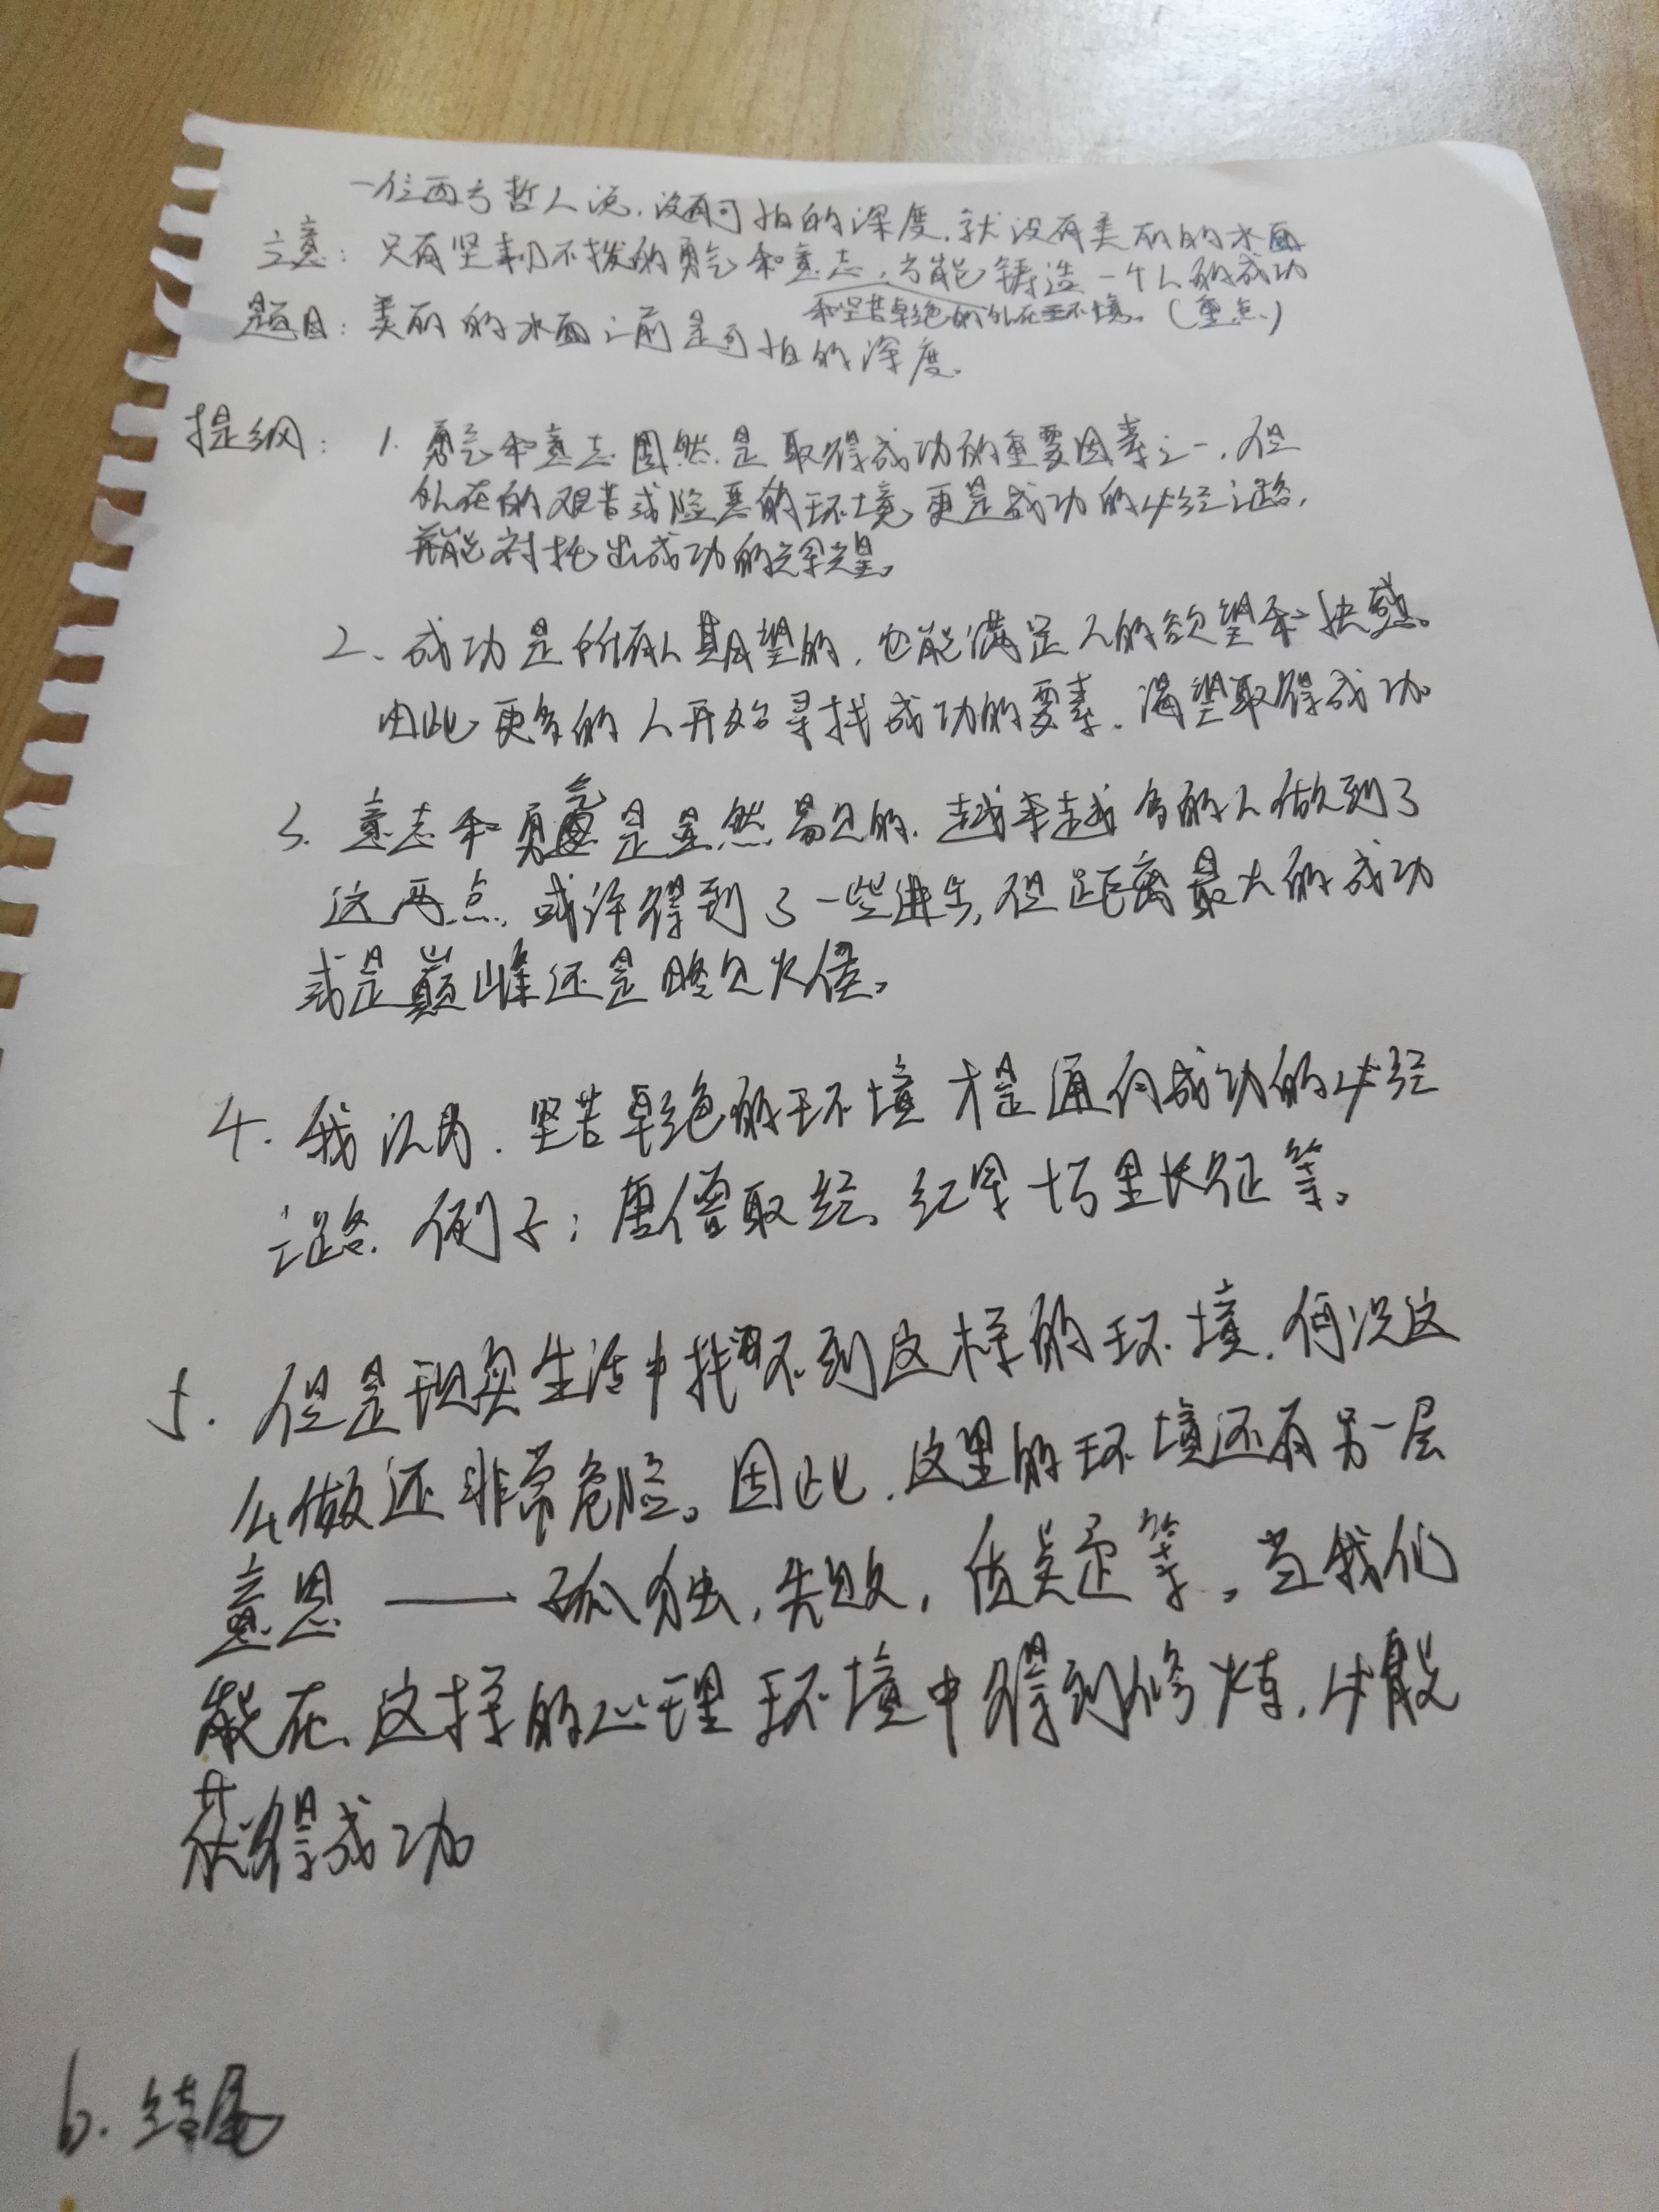 一位西方哲人说，没有可怕的深度，就没有美丽的水面
立意：只有坚韧不拔的勇气和意志，方能铸造一个人的成功
和坚苦卓绝的外在环境。（重点）
题目：美丽的水面之前是可怕的深度。
提纲：1. 勇气和意志固然是取得成功的重要因素之一，但
外在的艰苦或险恶的环境更是成功的必经之路，
并能衬托出成功的光辉。
2、成功是所有人期望的，也能满足人的欲望和快感。
因此更多的人开始寻找成功的要素，渴望取得成功。
3. 意志和勇气是显然易见的，越来越多的人做到了
这两点，或许得到了一些进步，但距离最大的成功
或是巅峰还是略欠火侯。
4. 我认为，坚苦卓绝的环境才是通向成功的必经
之路。例子：唐僧取经、红军十万里长征等。
5. 但是现实生活中找不到这样的环境，何况这
么做还非常危险。因此，这里的环境还有另一层
意思——孤独，失败，质疑等。当我们
能在这样的心理环境中得到修炼，必能
获得成功
6. 结尾